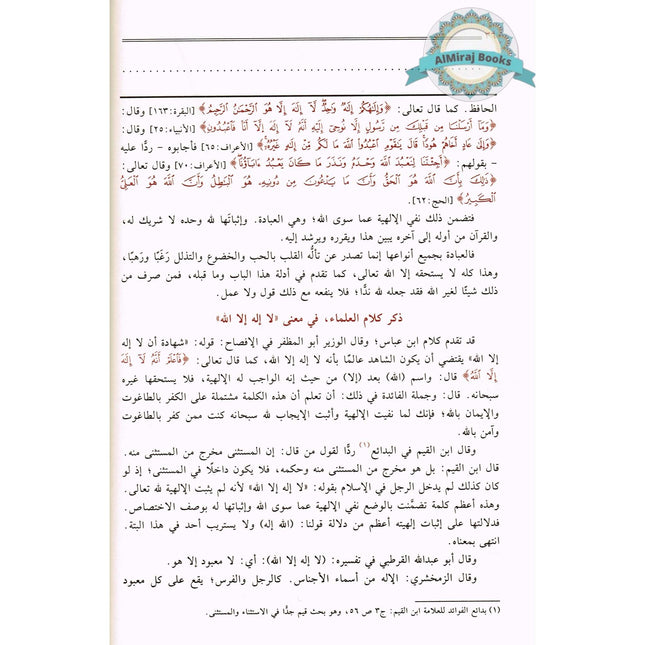 AlMiraj Books
الحافظ. كما قال تعالى: ﴿وَإِلَٰهُكُمْ إِلَٰهٌ وَاحِدٌ لَّا إِلَٰهَ إِلَّا هُوَ الرَّحْمَٰنُ الرَّحِيمُ﴾ [البقرة: ١٦٣] وقال:
﴿وَمَا أَرْسَلْنَا مِن قَبْلِكَ مِن رَّسُولٍ إِلَّا نُوحِي إِلَيْهِ أَنَّهُ لَا إِلَٰهَ إِلَّا أَنَا فَاعْبُدُونِ﴾ [الأنبياء: ٢٥] وقال:
﴿وَإِلَىٰ عَادٍ أَخَاهُمْ هُودًا قَالَ يَٰقَوْمِ اعْبُدُوا اللَّهَ مَا لَكُم مِّنْ إِلَٰهٍ غَيْرُهُ﴾ [الأعراف: ٦٥] فأجابوه - ردًّا عليه
- بقولهم: ﴿أَجِئْتَنَا لِنَعْبُدَ اللَّهَ وَحْدَهُ وَنَذَرَ مَا كَانَ يَعْبُدُ ءَابَاؤُنَا﴾ [الأعراف: ٧٠] وقال تعالى:
﴿ذَٰلِكَ بِأَنَّ اللَّهَ هُوَ الْحَقُّ وَأَنَّ مَا يَدْعُونَ مِن دُونِهِ هُوَ الْبَٰطِلُ وَأَنَّ اللَّهَ هُوَ الْعَلِيُّ
الْكَبِيرُ﴾ [الحج: ٦٢].
فتضمن ذلك نفي الإلهية عما سوى الله؛ وهي العبادة. وإثباتَها لله وحده لا شريك له،
والقرآن من أوله إلى آخره يبين هذا ويقرره ويرشد إليه.
فالعبادة بجميع أنواعها إنما تصدر عن تألُّه القلب بالحب والخضوع والتذلل رَغَبًا ورَهَبًا،
وهذا كله لا يستحقه إلا الله تعالى، كما تقدم في أدلة هذا الباب وما قبله، فمن صرف من
ذلك شيئًا لغير الله فقد جعله لله ندًّا؛ فلا ينفعه مع ذلك قول ولا عمل.
ذكر كلام العلماء، في معنى «لا إله إلا الله»
قد تقدم كلام ابن عباس؛ وقال الوزير أبو المظفر في الإفصاح: قوله: «شهادة أن لا إله
إلا الله» يقتضي أن يكون الشاهد عالمًا بأنه لا إله إلا الله، كما قال تعالى: ﴿فَاعْلَمْ أَنَّهُ لَا إِلَٰهَ
إِلَّا اللَّهُ﴾ قال: واسم (الله) بعد (إلا) من حيث إنه الواجب له الإلهية، فلا يستحقها غيره
سبحانه. قال: وجملة الفائدة في ذلك: أن تعلم أن هذه الكلمة مشتملة على الكفر بالطاغوت
والإيمان بالله؛ فإنك لما نفيت الإلهية وأثبت الإيجاب لله سبحانه كنت ممن كفر بالطاغوت
وآمن بالله.
وقال ابن القيم في البدائع(١) ردًّا لقول من قال: إن المستثنى مخرج من المستثنى منه.
قال ابن القيم: بل هو مخرج من المستثنى منه وحكمه، فلا يكون داخلًا في المستثنى؛ إذ لو
كان كذلك لم يدخل الرجل في الإسلام بقوله: «لا إله إلا الله» لأنه لم يثبت الإلهية لله تعالى.
وهذه أعظم كلمة تضمَّنت بالوضع نفي الإلهية عما سوى الله وإثباتها له بوصف الاختصاص.
فدلالتها على إثبات إلهيته أعظم من دلالة قولنا: (الله إله) ولا يستريب أحد في هذا البتة.
انتهى بمعناه.
وقال أبو عبدالله القرطبي في تفسيره: (لا إله إلا الله): أي: لا معبود إلا هو.
وقال الزمخشري: الإله من أسماء الأجناس. كالرجل والفرس؛ يقع على كل معبود
(١) بدائع الفوائد للعلامة ابن القيم: ج٣ ص ٥٦، وهو بحث قيم جدًّا في الاستثناء والمستثنى.